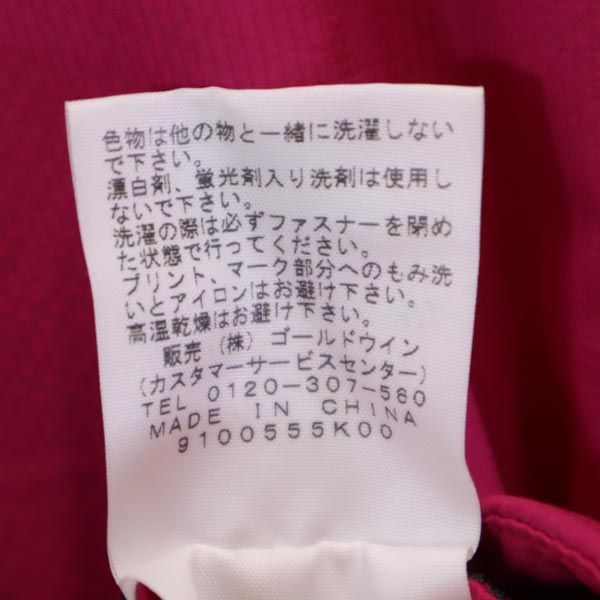 色物は他の物と一緒に洗濯しない
で下さい。
漂白剤、蛍光剤入り洗剤は使用し
ないで下さい。
洗濯の際は必ずファスナーを閉め
た状態で行ってください。
プリント、マーク部分へのもみ洗
いとアイロンはお避け下さい。
高温乾燥はお避け下さい。
販売 (株) ゴールドウイン
(カスタマーサービスセンター)
TEL 0120-307-560
MADE IN CHINA
9100555K00